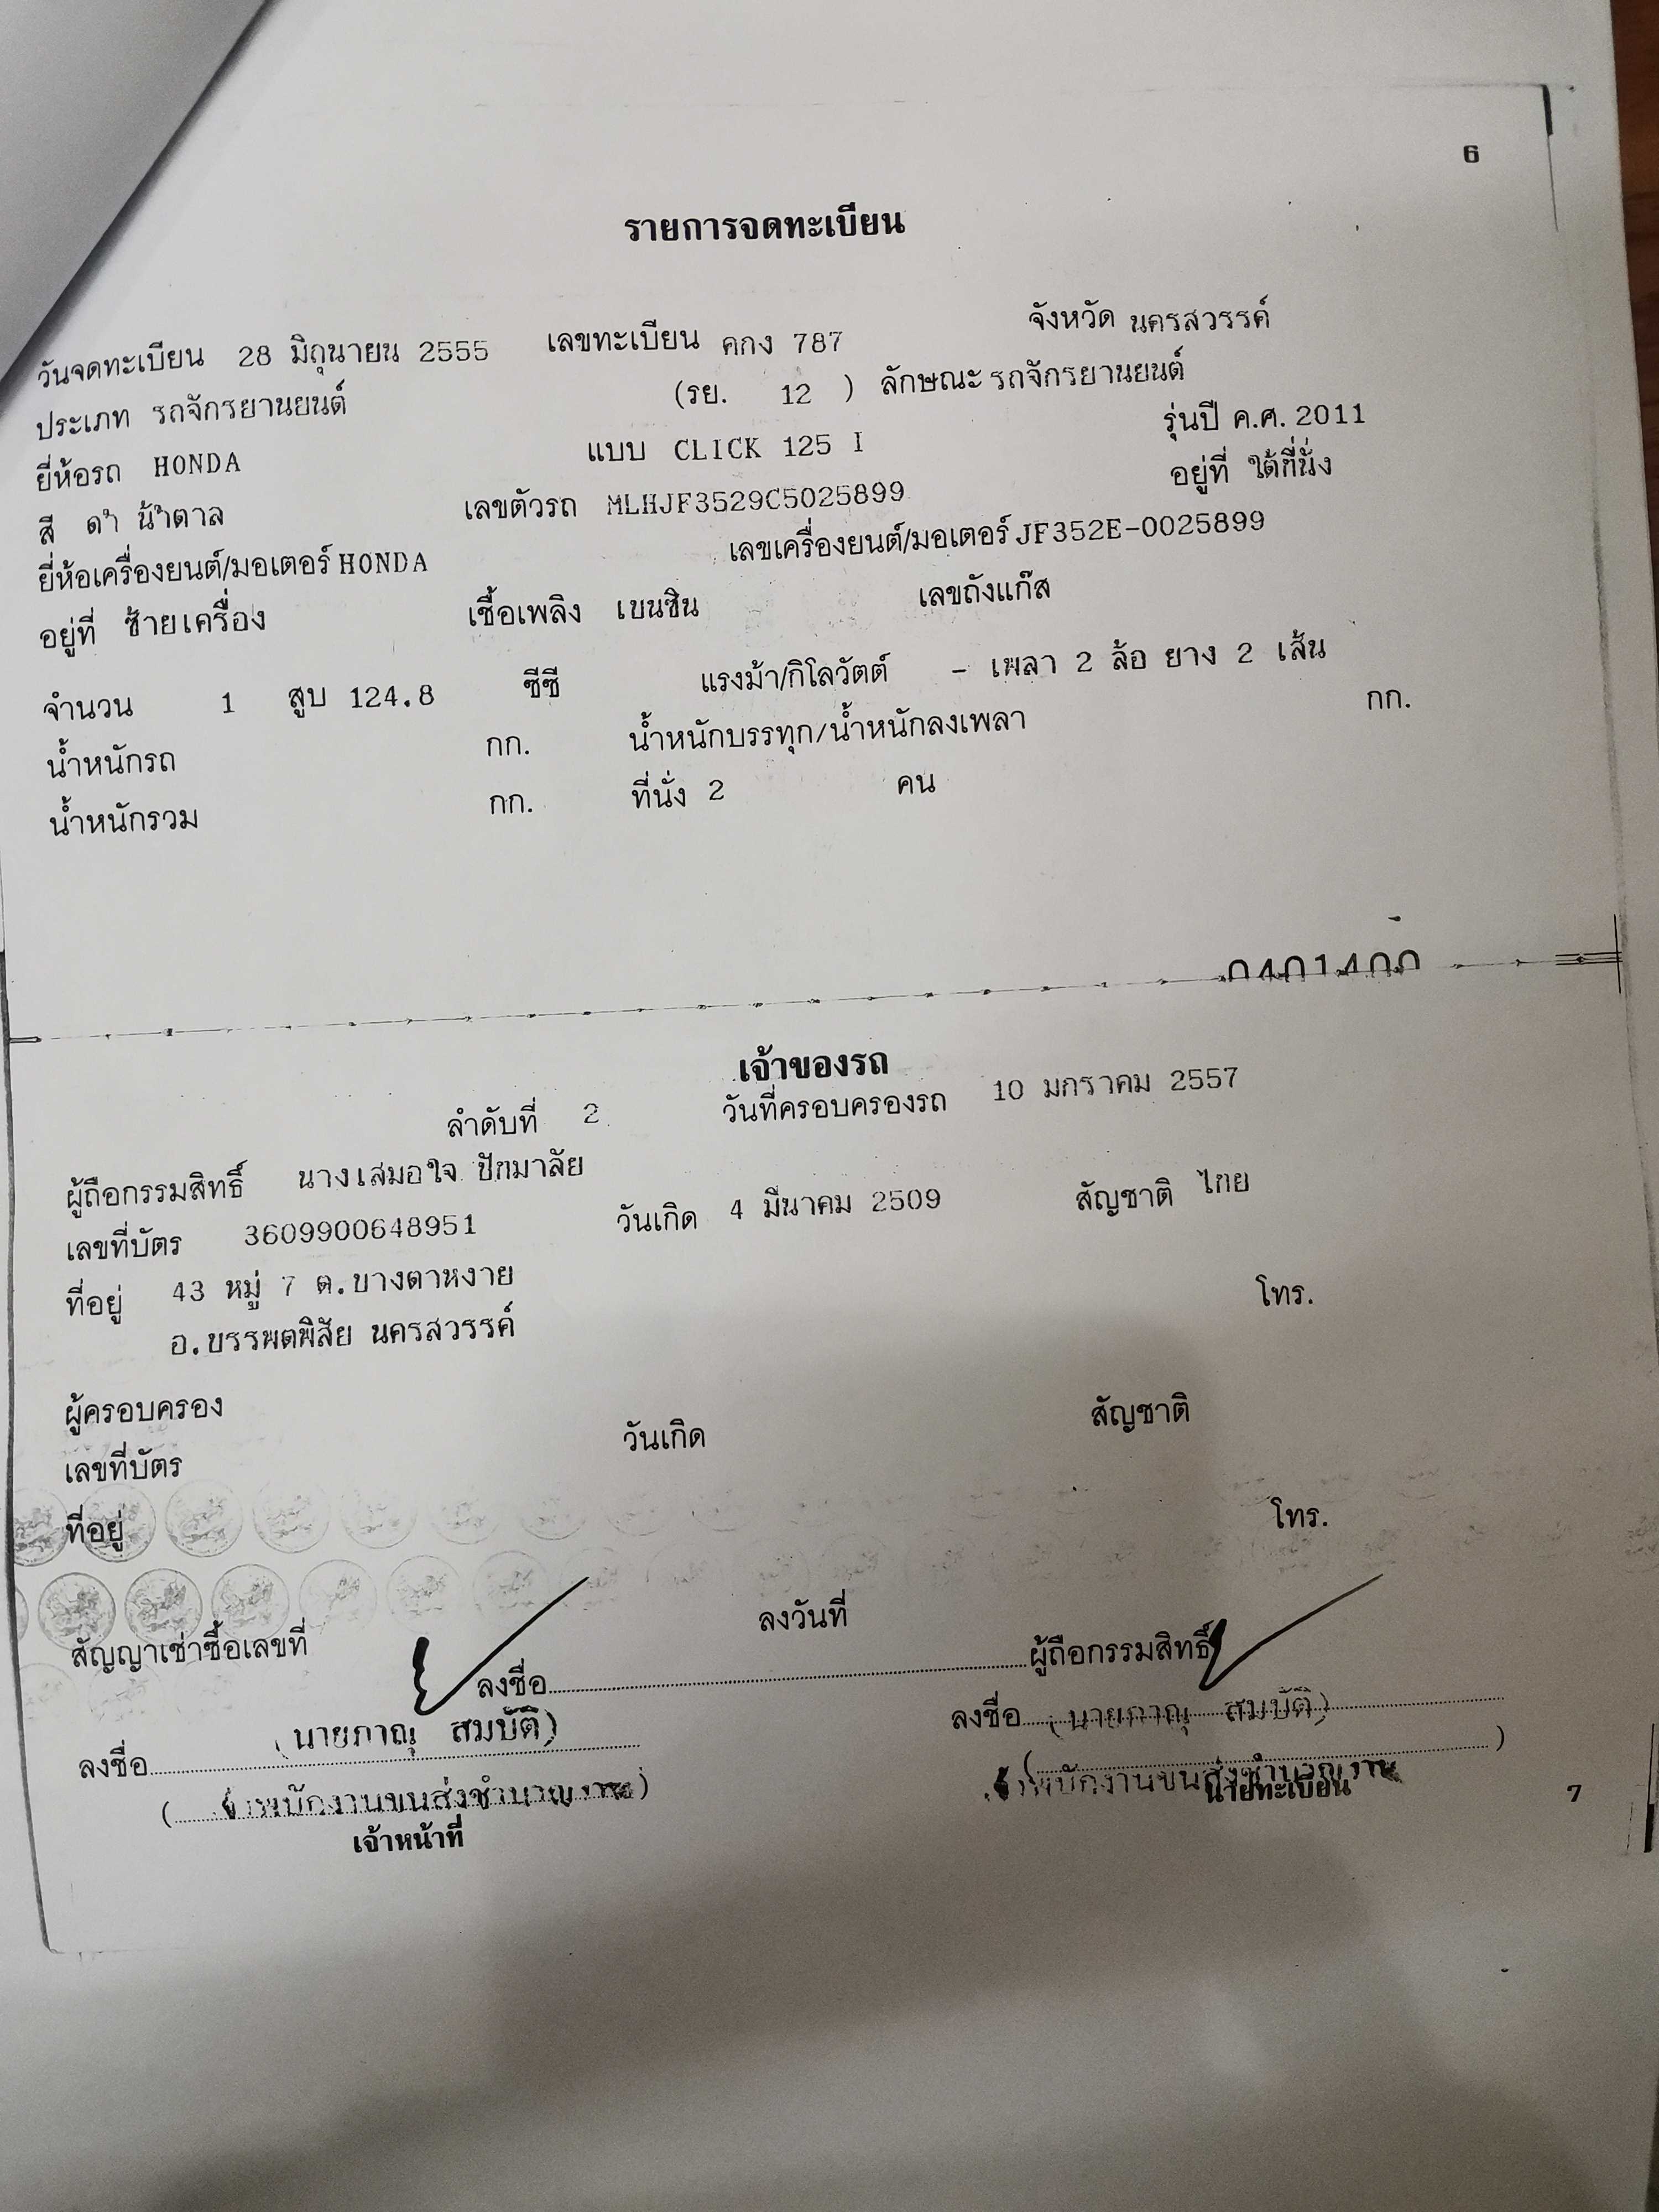 6
รายการจดทะเบียน
วันจดทะเบียน 28 มิถุนายน 2555 เลขทะเบียน คกง 787 จังหวัด นครสวรรค์
ประเภท รถจักรยานยนต์ (รย. 12 ) ลักษณะ รถจักรยานยนต์
ยี่ห้อรถ HONDA แบบ CLICK 125 I รุ่นปี ค.ศ. 2011
สี ดำ น้ำตาล เลขตัวรถ MLHJF3529C5025899 อยู่ที่ ใต้ที่นั่ง
ยี่ห้อเครื่องยนต์/มอเตอร์ HONDA เลขเครื่องยนต์/มอเตอร์ JF352E-0025899
อยู่ที่ ซ้ายเครื่อง เชื้อเพลิง เบนซิน เลขถังแก๊ส
จำนวน 1 สูบ 124.8 ซีซี แรงม้า/กิโลวัตต์ - เพลา 2 ล้อ ยาง 2 เส้น
น้ำหนักรถ กก. น้ำหนักบรรทุก/น้ำหนักลงเพลา กก.
น้ำหนักรวม กก. ที่นั่ง 2 คน
เจ้าของรถ
ลำดับที่ 2 วันที่ครอบครองรถ 10 มกราคม 2557
ผู้ถือกรรมสิทธิ์ นางเสมอใจ ปักมาลัย
เลขที่บัตร 3609900648951 วันเกิด 4 มีนาคม 2509 สัญชาติ ไทย
ที่อยู่ 43 หมู่ 7 ต.บางตาหงาย โทร.
อ.บรรพตพิสัย นครสวรรค์
ผู้ครอบครอง
เลขที่บัตร วันเกิด สัญชาติ
ที่อยู่ โทร.
สัญญาเช่าซื้อเลขที่ ลงวันที่
ลงชื่อ ผู้ถือกรรมสิทธิ์
(นายภาณุ สมบัติ) ลงชื่อ (นายภาณุ สมบัติ)
ลงชื่อ
(เจ้าพนักงานขนส่งชำนาญงาน) เจ้าพนักงานขนส่งชำนาญงาน )
เจ้าหน้าที่ นายทะเบียน 7